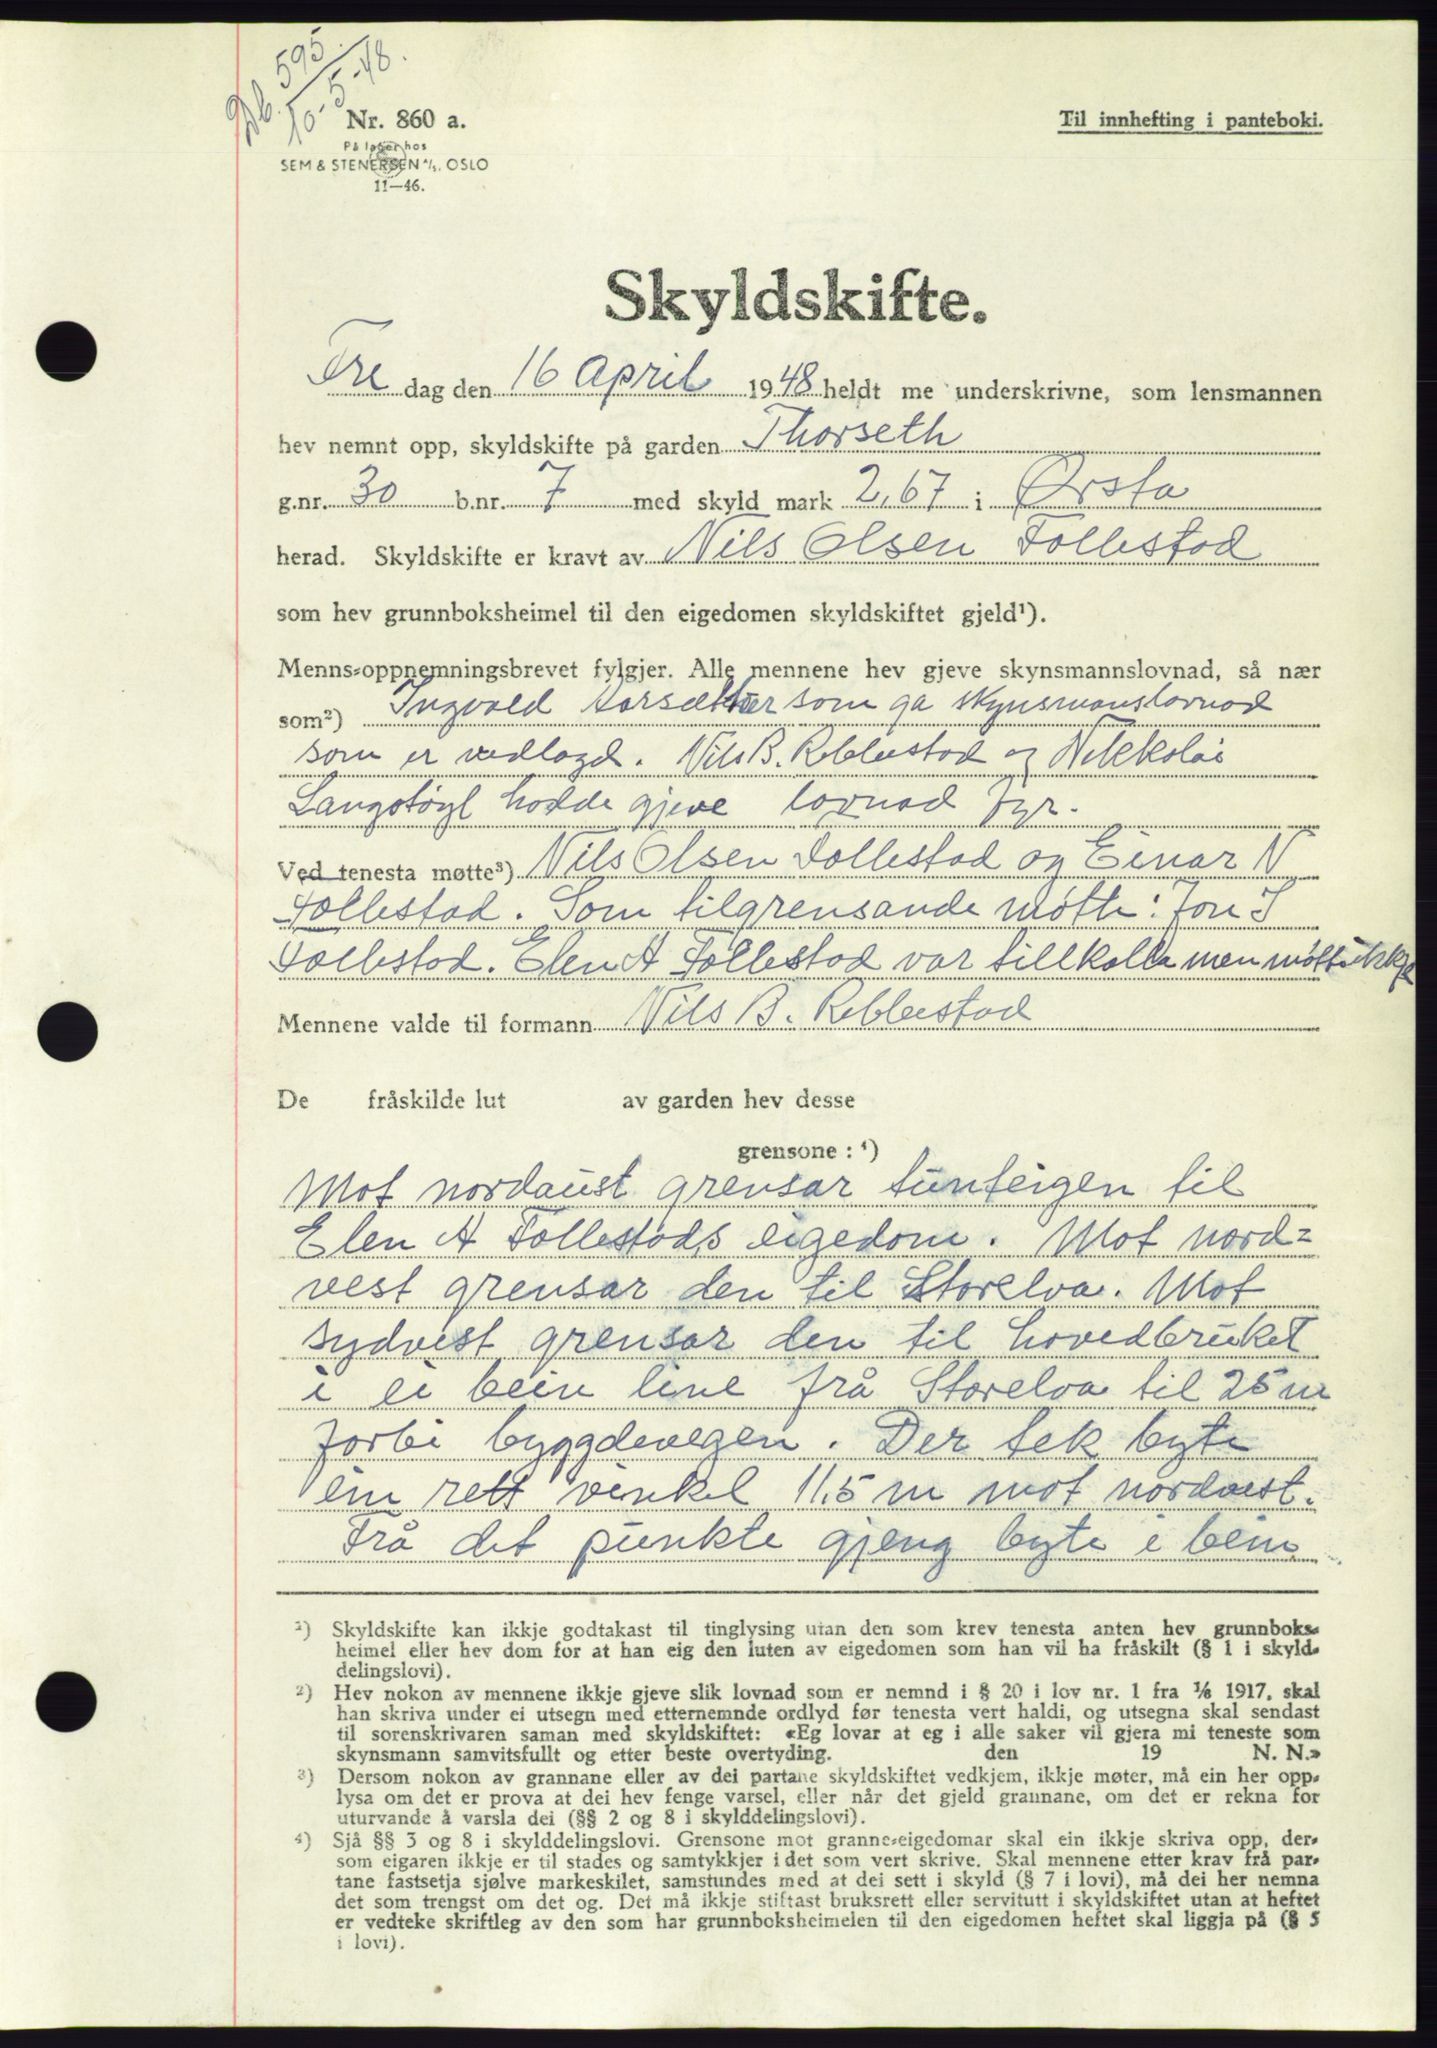 Db. 595
10-5-48.
Nr. 860 a.
På lager hos
SEM & STENERSEN A/S. OSLO
11—46.
Til innhefting i panteboki.
Skyldskifte.
Fre dag den 16 April 1948 heldt me underskrivne, som lensmannen
hev nemnt opp, skyldskifte på garden Thorseth
g.nr. 30 b.nr. 7 med skyld mark 2,67 i Ørsta
herad. Skyldskifte er kravt av Nils Olsen Follestad
som hev grunnboksheimel til den eigedomen skyldskiftet gjeld¹).
Menns-oppnemningsbrevet fylgjer. Alle mennene hev gjeve skynsmannslovnad, så nær
som²) Ingvald Aarsether som ga skynsmanslovnad
som er vedlagd. Nils B. Rebbestad og Nikkolai
Langstøyl hadde gjeve lovnad fyr.
Ved tenesta møtte³) Nils Olsen Follestad og Einar N
Follestad. Som tilgrensande møtte: Jon J
Follestad. Elen A Follestad var tillkalla men møtte ikkje
Mennene valde til formann Nils B. Rebbestad
De fråskilde lut av garden hev desse
grensone : ⁴)
Mot nordaust grensar tunteigen til
Elen A Follestads eigedom. Mot nord=
vest grensar den til Storelva. Mot
sydvest grensar den til hovedbruket
i ei bein line frå Storelva til 25 m
forbi byggdevegen. Der tek byte
ein rett vinkel 11,5 m mot nordvest.
Frå det punkte gjeng byte i bein
¹) Skyldskifte kan ikkje godtakast til tinglysing utan den som krev tenesta anten hev grunnboks-
heimel eller hev dom for at han eig den luten av eigedomen som han vil ha fråskilt (§ 1 i skyld-
delingslovi).
²) Hev nokon av mennene ikkje gjeve slik lovnad som er nemnd i § 20 i lov nr. 1 fra 1/6 1917, skal
han skriva under ei utsegn med etternemnde ordlyd før tenesta vert haldi, og utsegna skal sendast
til sorenskrivaren saman med skyldskiftet: «Eg lovar at eg i alle saker vil gjera mi teneste som
skynsmann samvitsfullt og etter beste overtyding. den 19 N. N.»
³) Dersom nokon av grannane eller av dei partane skyldskiftet vedkjem, ikkje møter, må ein her opp-
lysa om det er prova at dei hev fenge varsel, eller når det gjeld grannane, om det er rekna for
uturvande å varsla dei (§§ 2 og 8 i skylddelingslovi).
⁴) Sjå §§ 3 og 8 i skylddelingslovi. Grensone mot granne-eigedomar skal ein ikkje skriva opp, der-
som eigaren ikkje er til stades og samtykkjer i det som vert skrive. Skal mennene etter krav frå par-
tane fastsetja sjølve markeskilet, samstundes med at dei sett i skyld (§ 7 i lovi), må dei her nemna
det som trengst om det og. Det må ikkje stiftast bruksrett eller servitutt i skyldskiftet utan at heftet
er vedteke skriftleg av den som har grunnboksheimelen til den eigedomen heftet skal liggja på (§ 5
i lovi).